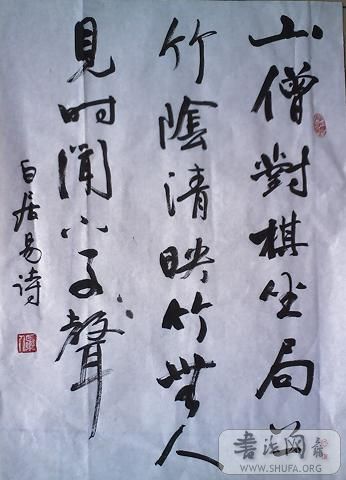 山僧對棋坐局上
竹陰清映竹無人
見时聞下子聲
白居易诗
書法网
WWW.SHUFA.ORG